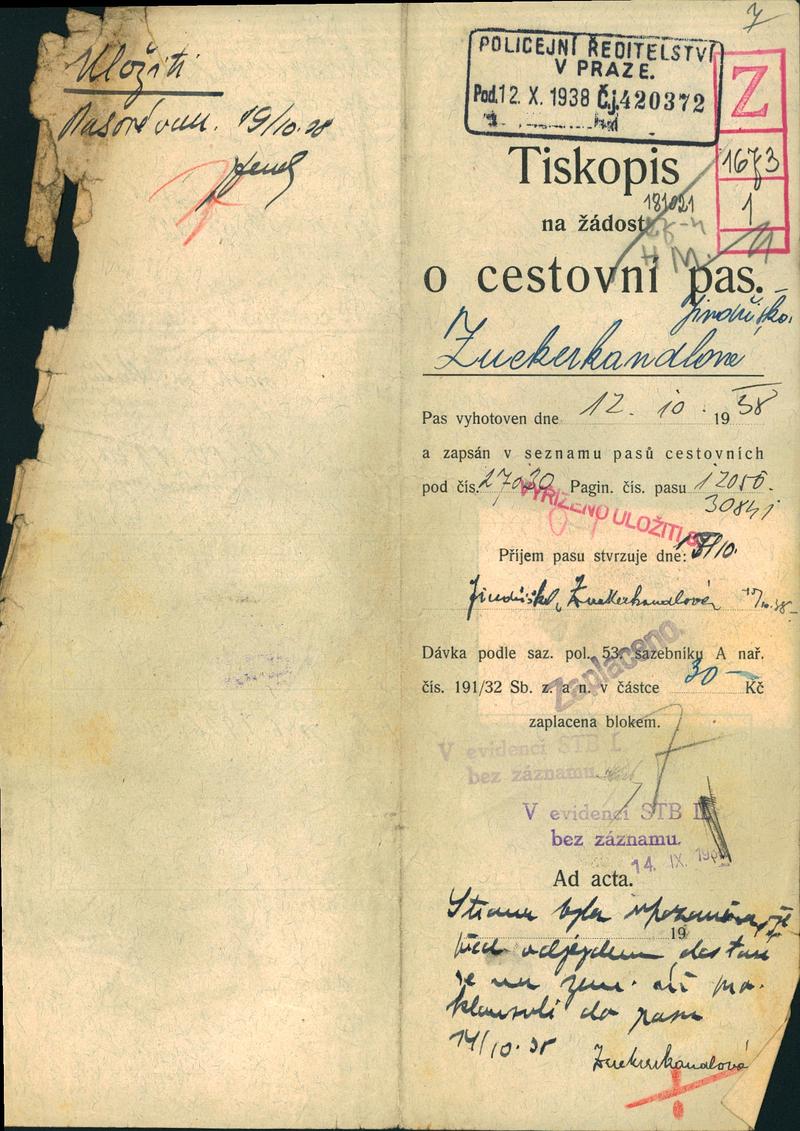 Uložiti
19/10.38
7
POLICEJNÍ ŘEDITELSTVÍ
V PRAZE.
Pod. 12. X. 1938 Č.j. 420372
Z
1673
1
Tiskopis
181021
na žádost
H M.
o cestovní pas.
Jindřiška
Zuckerkandlova
Pas vyhotoven dne 12. 10. 1938
a zapsán v seznamu pasů cestovních
pod čís. 27030 Pagin. čís. pasu 12056
30841
VYŘÍZENO ULOŽITI
Příjem pasu stvrzuje dne:
Jindřiška Zuckerkandlová
Dávka podle saz. pol. 53, sazebníku A nař.
čís. 191/32 Sb. z. a n. v částce 30 — Kč
Zaplaceno.
zaplacena blokem.
V evidenci STB I.
bez záznamu.
V evidenci STB II
bez záznamu.
14. IX.
Ad acta.
Strana byla
19
před odjezdem dostavi
se na zem.
klausuli do pasu
14/10.38
Zuckerkandlová